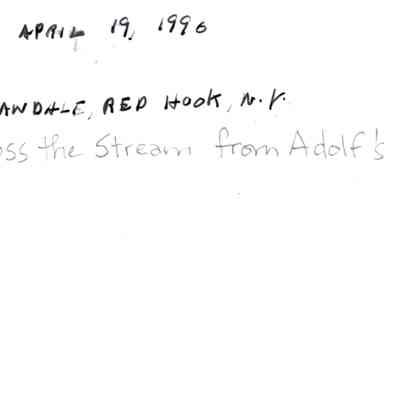 APRIL 19, 1996
AWDALE, RED HOOK, N.Y.
oss the Stream from Adolf's